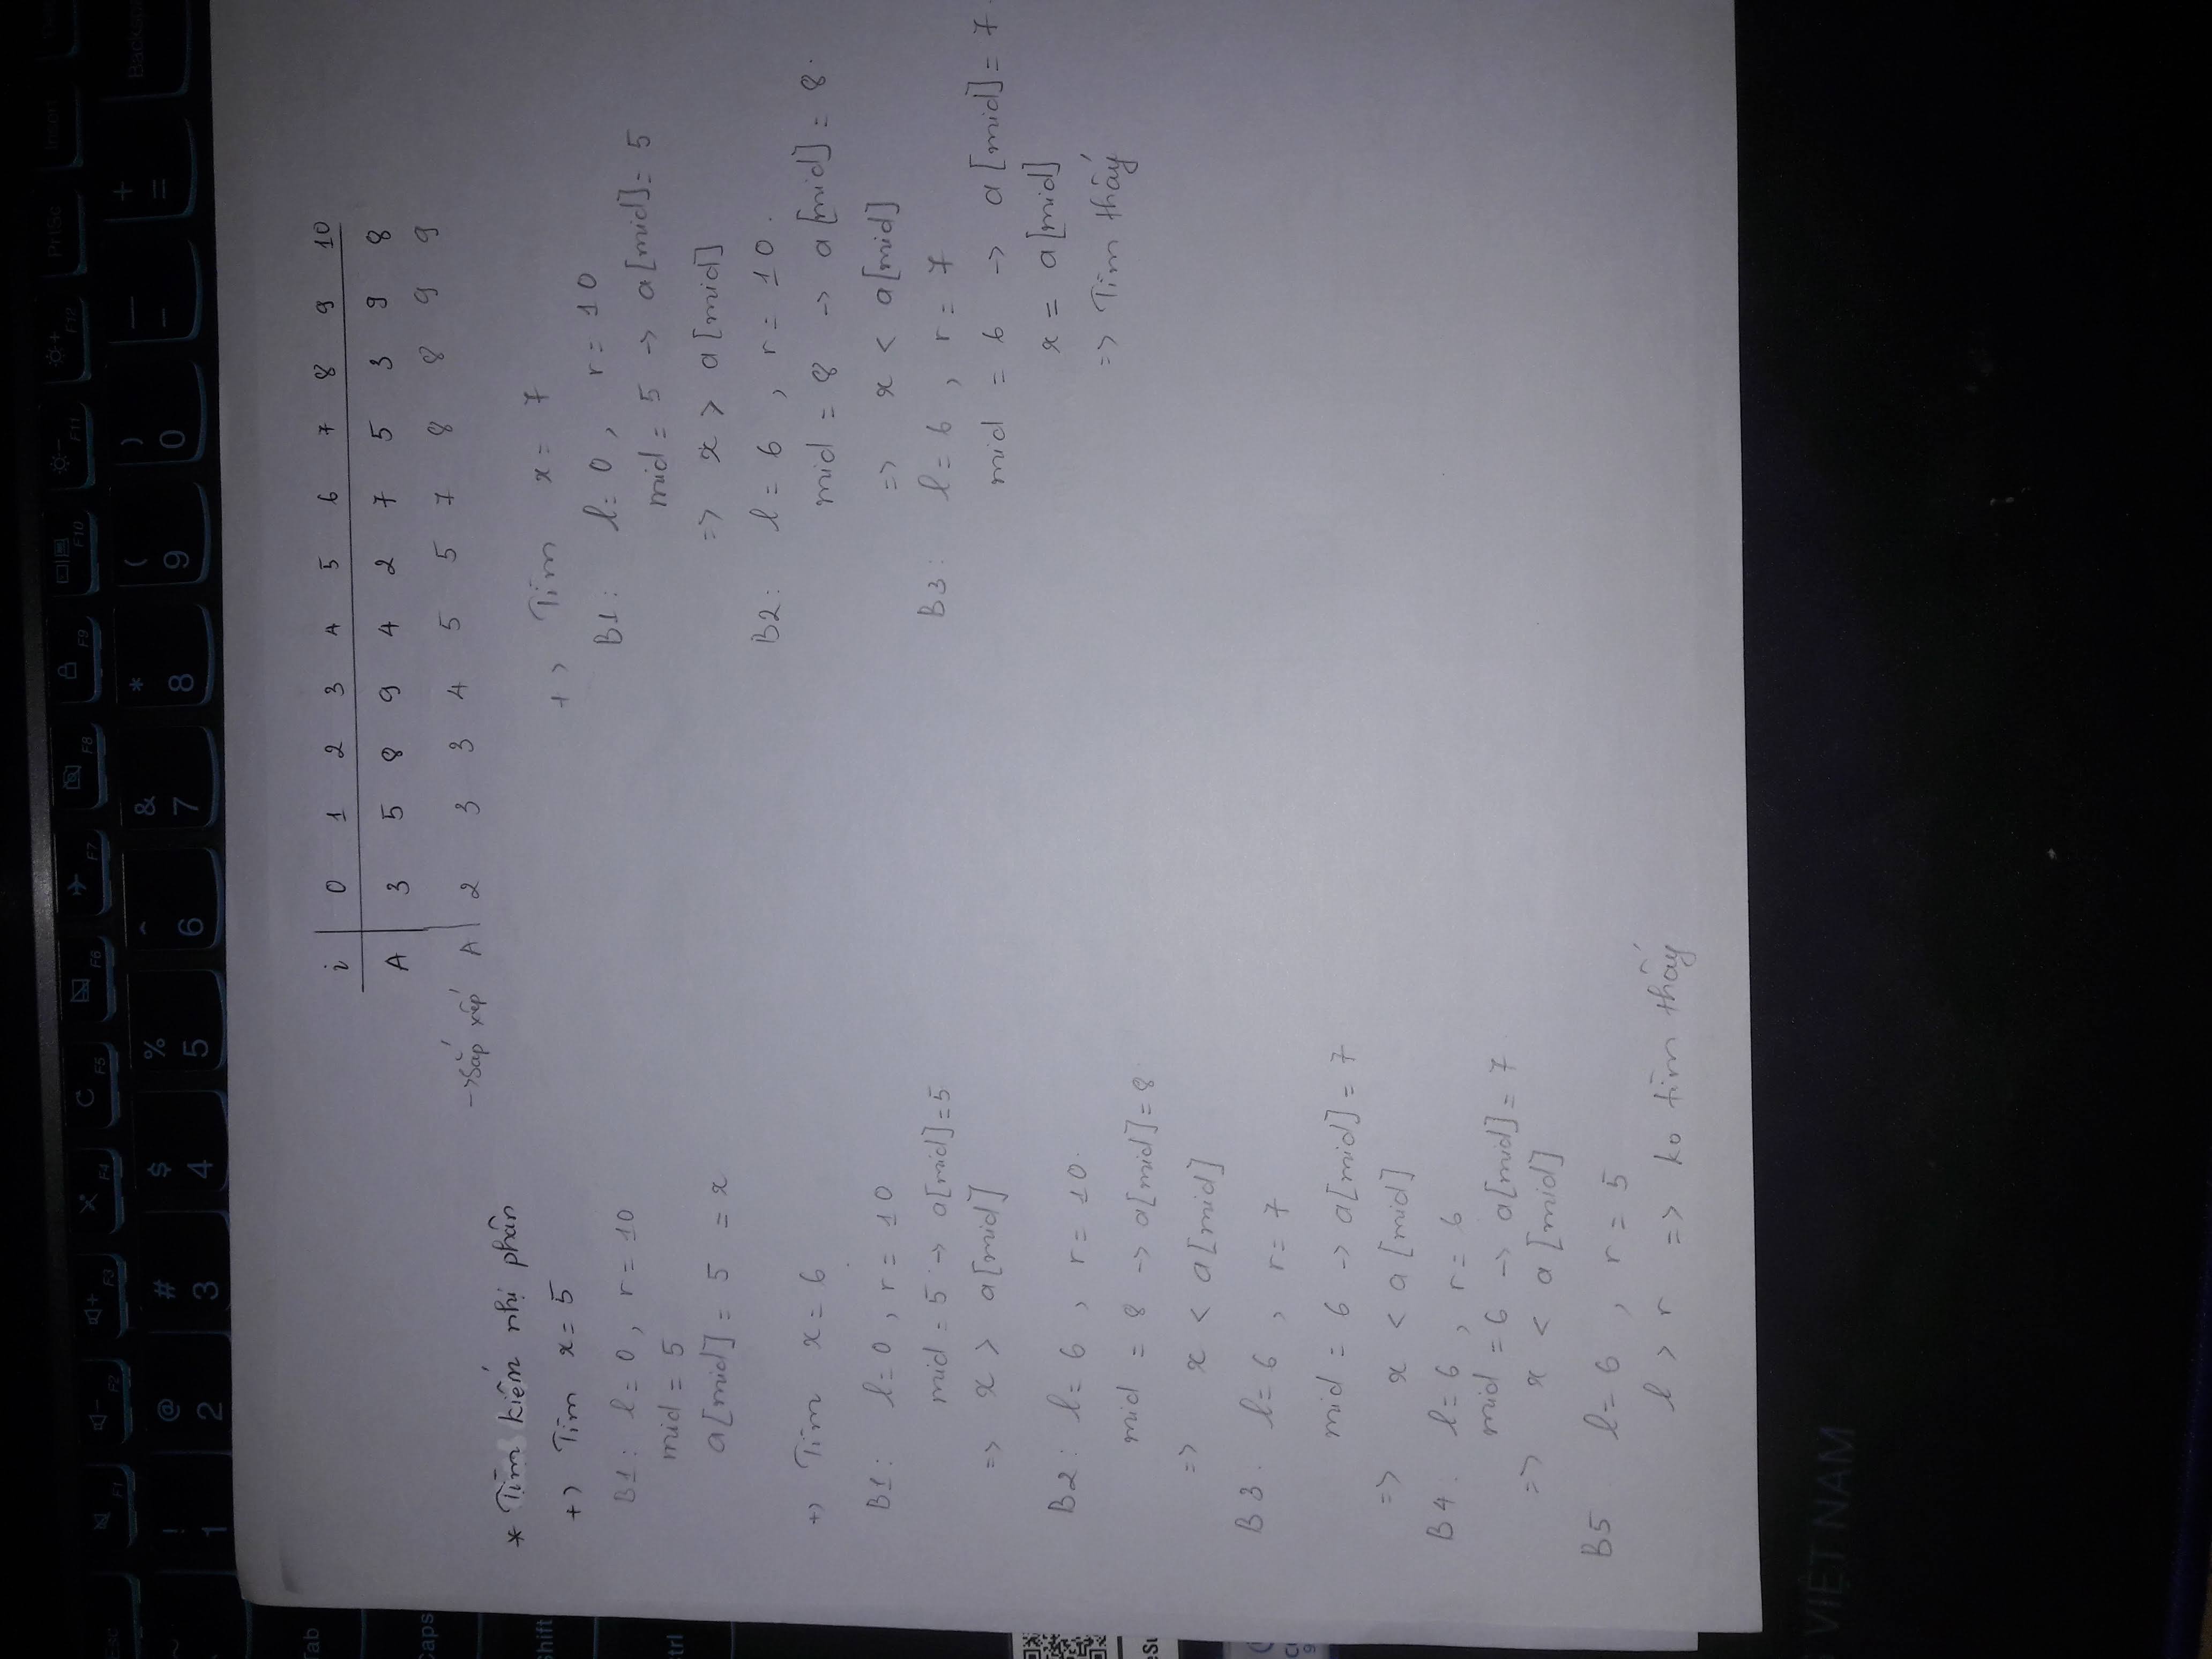 Esc F1 F2 F3 F4 F5 F6 F7 F8 F9 F10 F11 F12 PrtSc Insert
~ ! @ # $ % ^ & * ( ) — +
` 1 2 3 4 5 6 7 8 9 0 - = Backsp
Tab
Caps
Shift
Ctrl
i 0 1 2 3 4 5 6 7 8 9 10
A 3 5 8 9 4 2 7 5 3 9 8
-> Sắp xếp A 2 3 3 4 5 5 7 8 8 9 9
* Tìm kiếm nhị phân
+) Tìm x = 5
B1: l = 0, r = 10
mid = 5
a[mid] = 5 = x
+) Tìm x = 6
B1: l = 0, r = 10
mid = 5 -> a[mid] = 5
=> x > a[mid]
B2: l = 6, r = 10.
mid = 8 -> a[mid] = 8
=> x < a[mid]
B3. l = 6, r = 7
mid = 6 -> a[mid] = 7
=> x < a[mid]
B4. l = 6, r = 6
mid = 6 -> a[mid] = 7
=> x < a[mid]
B5 l = 6, r = 5
l > r => ko tìm thấy
+) Tìm x = 7
B1: l = 0, r = 10
mid = 5 -> a[mid] = 5
=> x > a[mid]
B2: l = 6, r = 10.
mid = 8 -> a[mid] = 8.
=> x < a[mid]
B3: l = 6, r = 7
mid = 6 -> a[mid] = 7.
x = a[mid]
=> Tìm thấy
VIỆT NAM